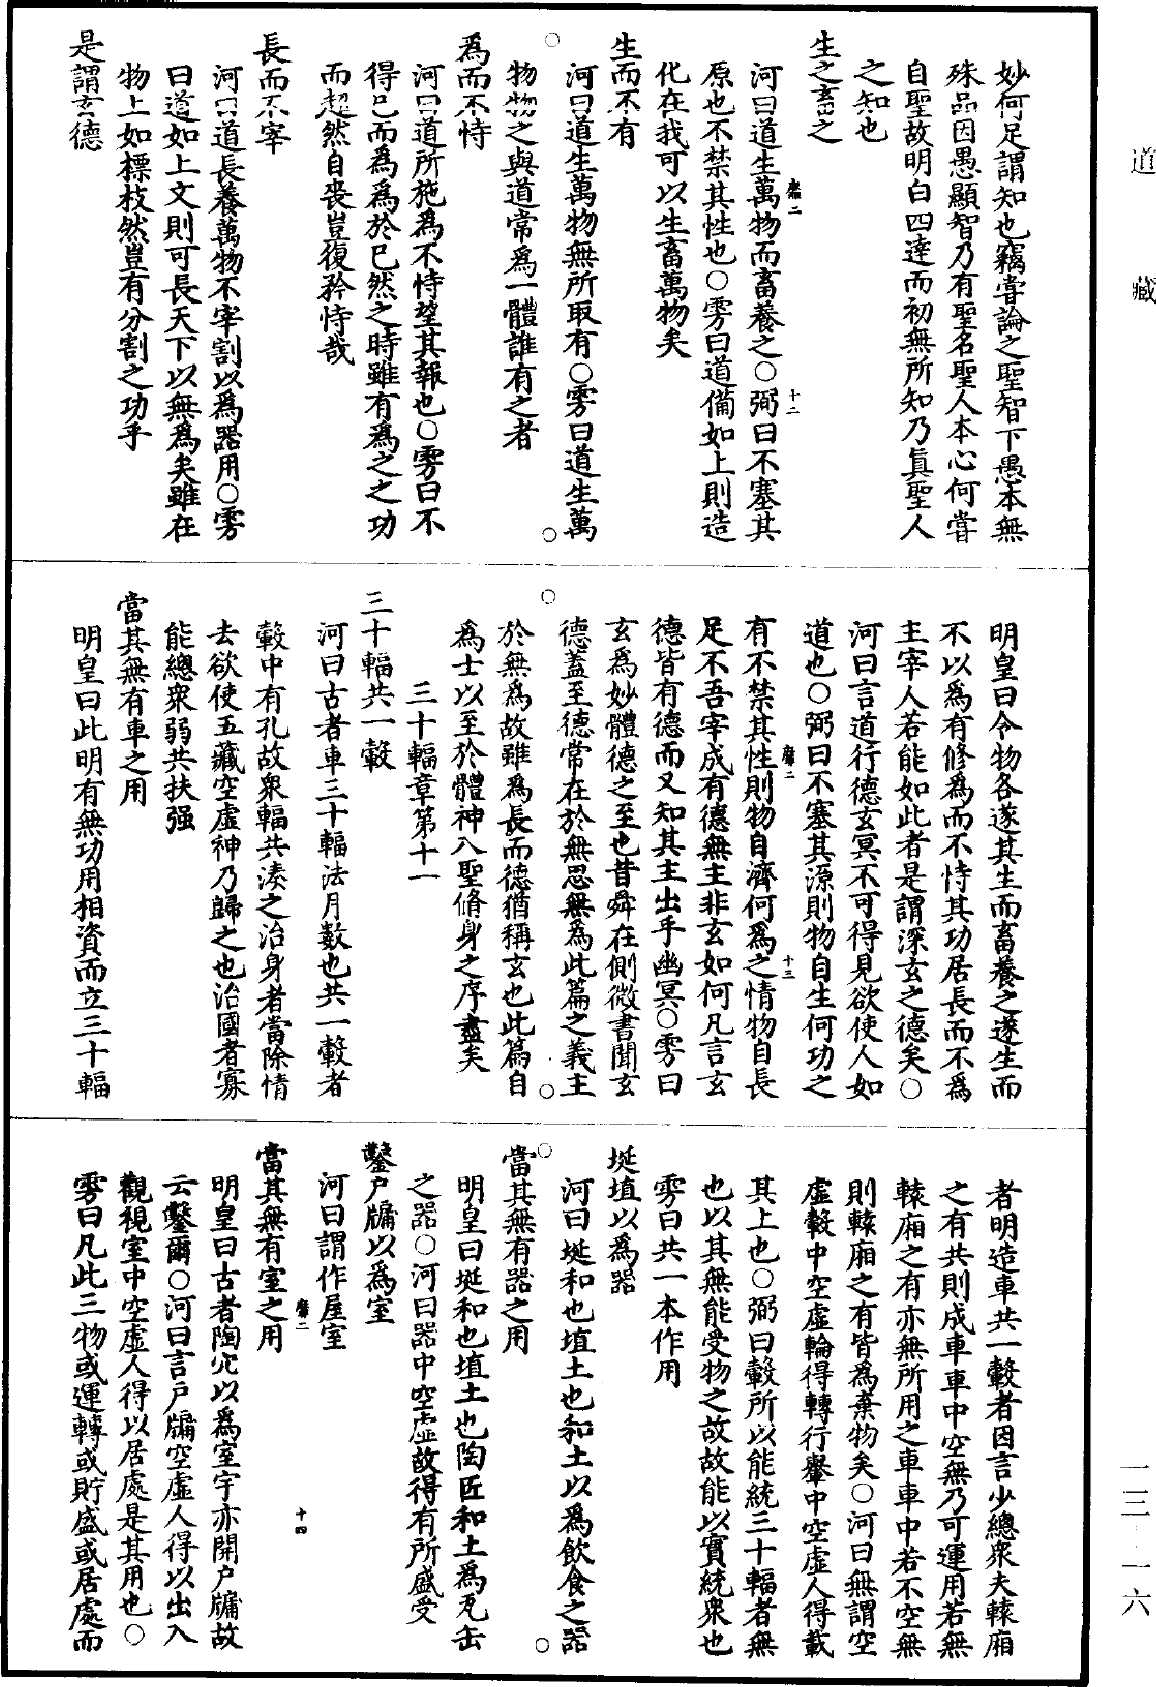 道藏
妙何足謂知也竊嘗論之聖智下愚本無
殊品因愚顯智乃有聖名聖人本心何嘗
自聖故明白四達而初無所知乃眞聖人
之知也
生之畜之
河曰道生萬物而畜養之○弼曰不塞其
原也不禁其性也○雱曰道備如上則造
化在我可以生畜萬物矣
生而不有
河曰道生萬物無所取有○雱曰道生萬
物物之與道常爲一體誰有之者
爲而不恃
河曰道所施爲不恃望其報也○雱曰不
得已而爲爲於已然之時雖有爲之之功
而超然自喪豈復矜恃哉
長而不宰
河曰道長養萬物不宰割以爲器用○雱
曰道如上文則可長天下以無爲矣雖在
物上如標枝然豈有分割之功乎
是謂玄德
明皇曰令物各遂其生而畜養之遂生而
不以爲有修爲而不恃其功居長而不爲
主宰人若能如此者是謂深玄之德矣○
河曰言道行德玄冥不可得見欲使人如
道也○弼曰不塞其源則物自生何功之
有不禁其性則物自濟何爲之情物自長
足不吾宰成有德無主非玄如何凡言玄
德皆有德而又知其主出乎幽冥○雱曰
玄爲妙體德之至也昔舜在側微書聞玄
德蓋至德常在於無思無爲此篇之義主
於無爲故雖爲長而德猶稱玄也此篇自
爲士以至於體神入聖脩身之序盡矣
三十輻章第十一
三十輻共一轂
河曰古者車三十輻法月數也共一轂者
轂中有孔故衆輻共湊之治身者當除情
去欲使五藏空虛神乃歸之也治國者寡
能總衆弱共扶强
當其無有車之用
明皇曰此明有無功用相資而立三十輻
者明造車共一轂者因言少總衆夫轅廂
之有共則成車車中空無乃可運用若無
轅廂之有亦無所用之車車中若不空無
則轅廂之有皆爲棄物矣○河曰無謂空
虛轂中空虛輪得轉行轝中空虛人得載
其上也○弼曰轂所以能統三十輻者無
也以其無能受物之故故能以實統衆也
雱曰共一本作用
埏埴以爲器
河曰埏和也埴土也和土以爲飲食之器
當其無有器之用
明皇曰埏和也埴土也陶匠和土爲瓦缶
之器○河曰器中空虛故得有所盛受
鑿戶牖以爲室
河曰謂作屋室
當其無有室之用
明皇曰古者陶穴以爲室宇亦開戶牖故
云鑿爾○河曰言戶牖空虛人得以出入
觀視室中空虛人得以居處是其用也○
雱曰凡此三物或運轉或貯盛或居處而
十二
十三
十四
一三—一六